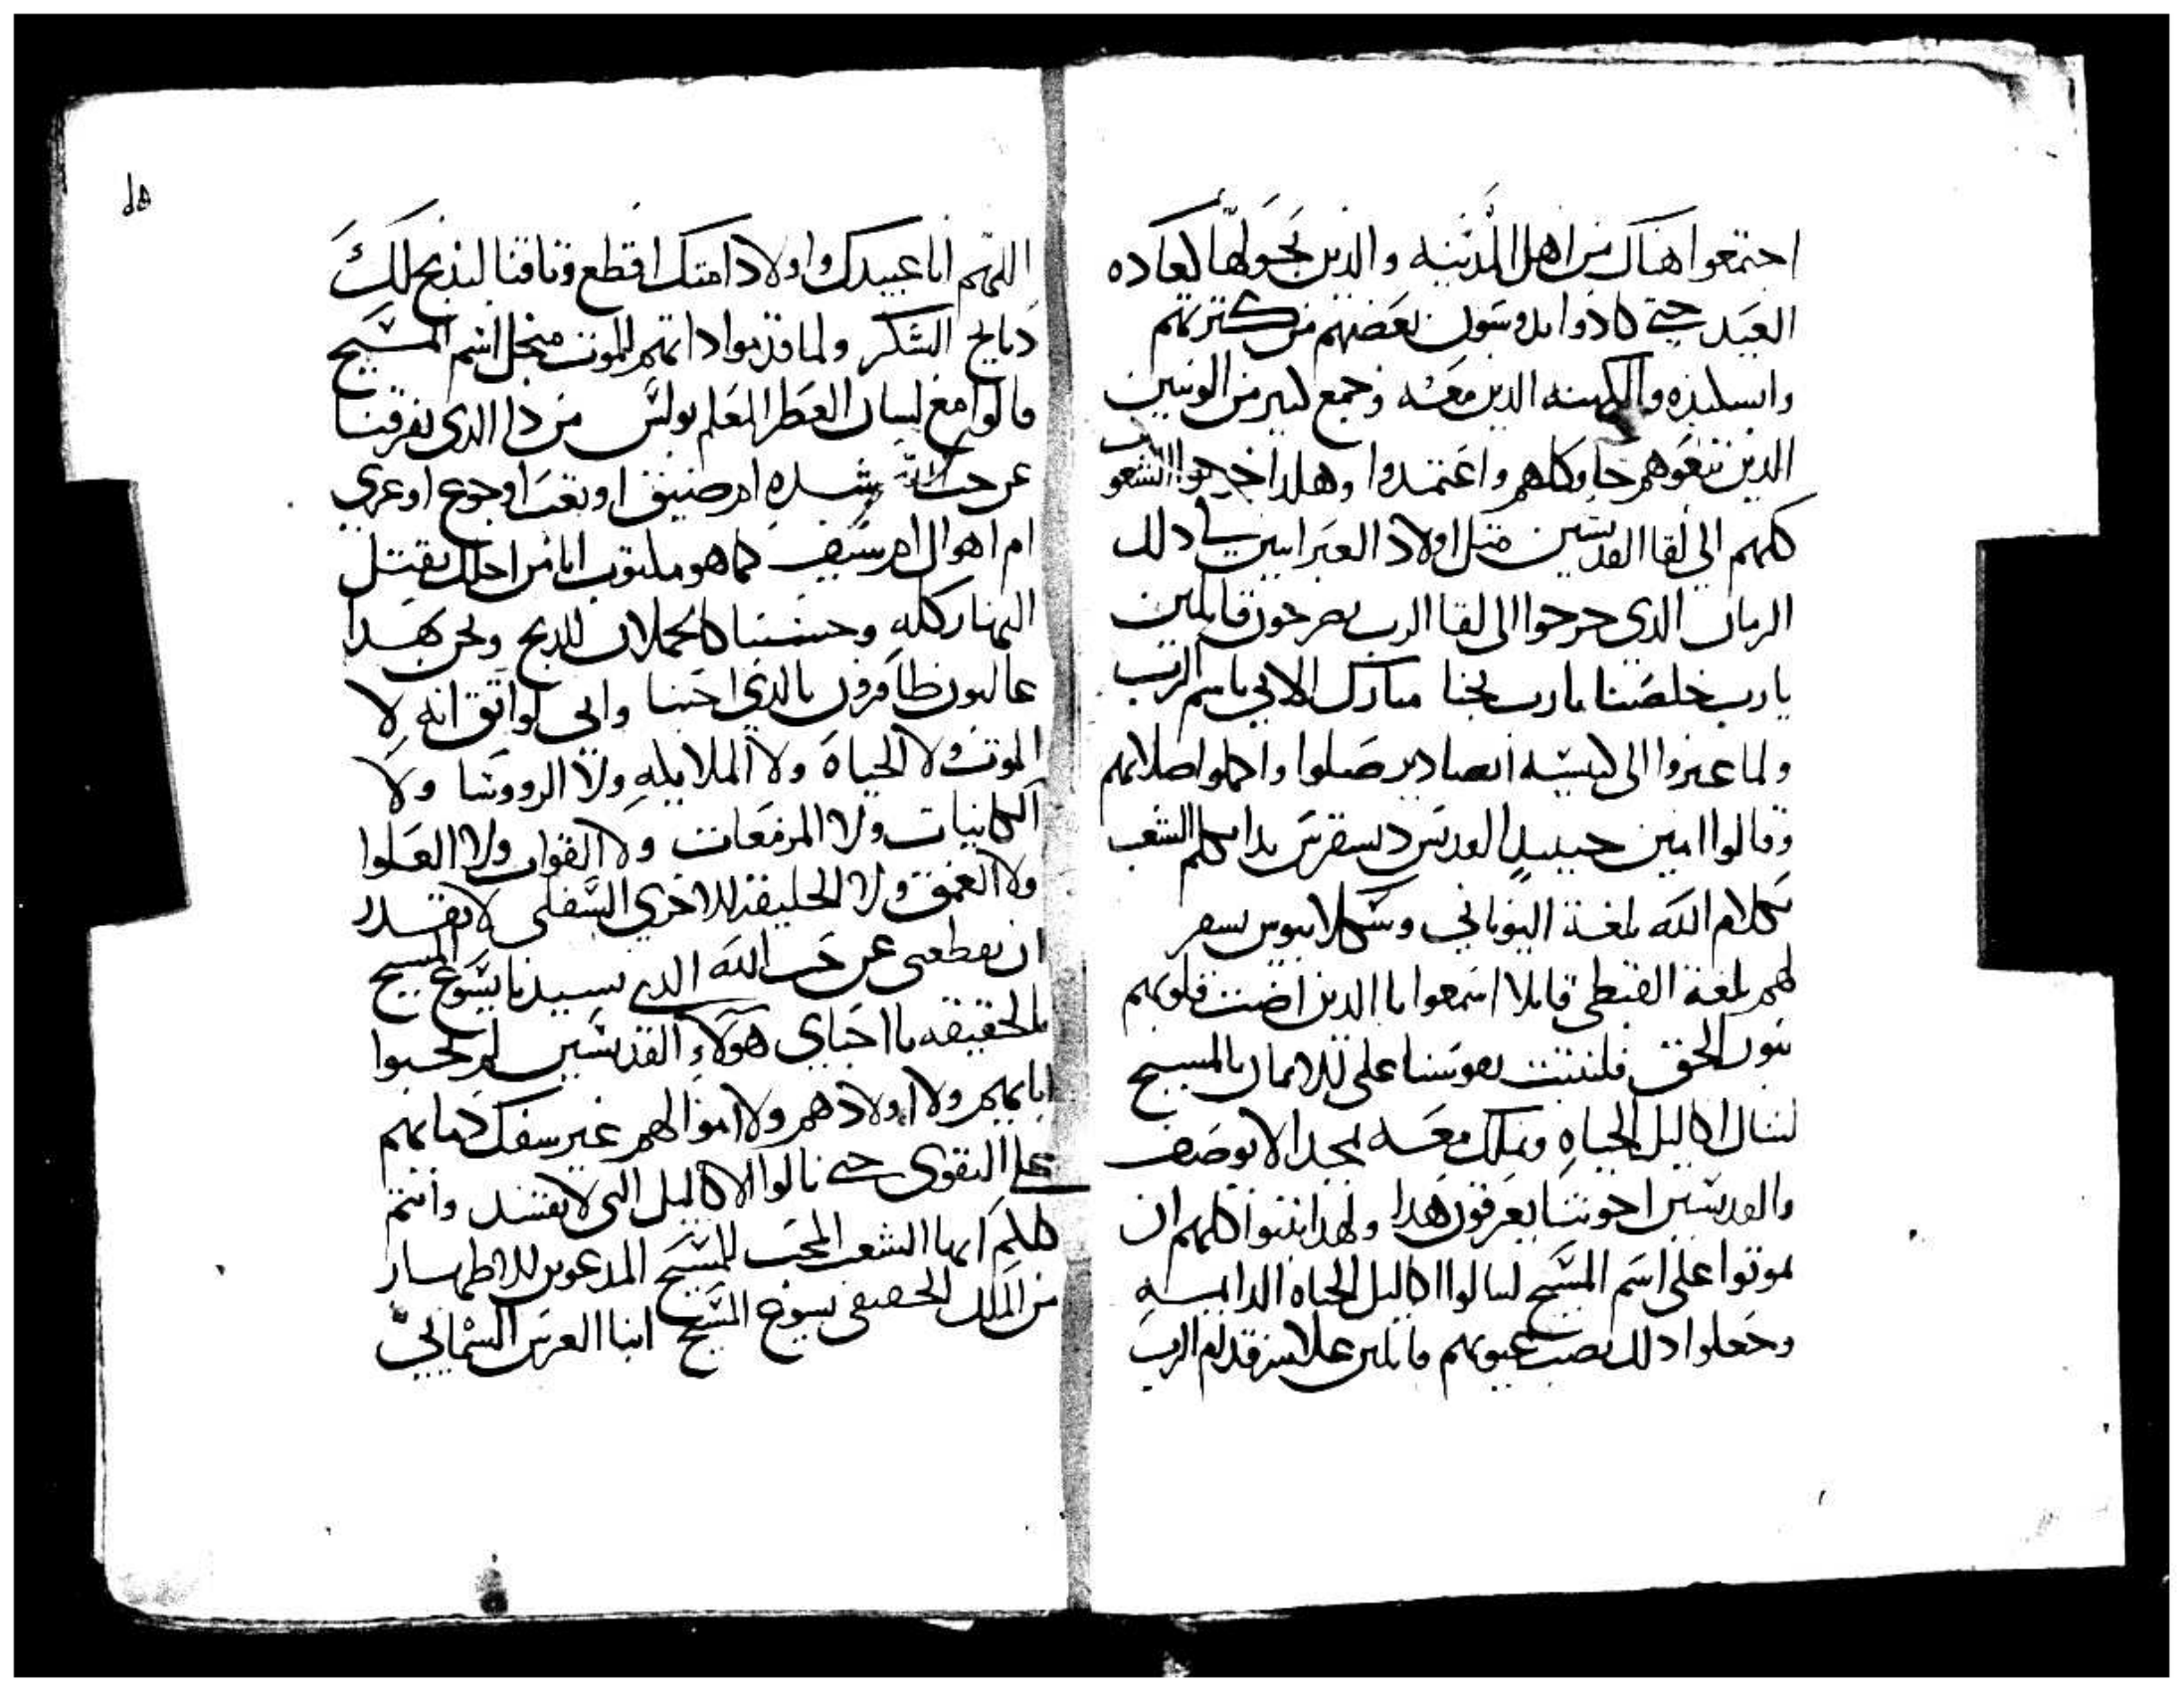 اجتمعوا هناك من اهل المدينه والدين بحولها لعاده
العيد حتى كادوا يدوسون بعضهم من كترتهم
والكهنه الدين معه وجمع كتير من الوتنيين
الدين تبعوهم جاو كلهم واعتمدوا وهكدا خرجوا الشعوب
كلهم الي لقا القديسين متل اولاد العبرانيين في دلك
الزمان الدي خرجوا الى لقا الرب يصرخون قايلين
يا رب خلصنا يا رب نجنا مبارك الاتي باسم الرب
ولما عبروا الى كنيسه صلوا واكملوا صلاتهم
وقالوا امين حينيدٍ القديس ديسقرس بدا يكلم الشعب
بكلام الله بلغة اليوناني وسكلابيوس يفسر
لهم بلغة القبطي قايلا اسمعوا يا الدين اضت قلوبهم
بنور الحق فلنتبت نفوسنا على الايمان بالمسيح
لننال اكاليل الحياه ونملك معه بمجد لا يوصف
والقديسين اخوتنا يعرفون هدا ولهدا تبتوا كلهم ان
يموتوا على اسم المسيح لينالوا اكاليل الحياه الدايمه
وجعلوا دلك نصب عيونهم قايلين علانيه قدام الرب
اللهم انا عبيدك واولاد امتك اقطع وتاقنا لندبح لك
دبايح الشكر ولما قدموا داتهم للموت منجل اسم المسيح
قالوا مع لسان العطر المعلم بولس من دا الدي يفرقنا
عن حب الله شده ام ضيق او تعب او جوع او عري
ام اهوال ام سيف كما هو مكتوب انا من اجلك نقتل
النهار كله وحسبنا كالحملان للدبح ونحن بهدا
غالبون ظافرون بالدي احبنا واني لواتق انه لا
الموت ولا الحياة ولا الملايكه ولا الرووسا ولا
الكاينات ولا المزمعات ولا القوات ولا العلوا
ولا العمق ولا الخليقه الاخري السفلى لا تقدر
ان تقطعني عن حب الله الدي بسيدنا يسوع المسيح
بالحقيقه يا احباي هولاء القديسين لم يحبوا
ابايهم ولا اولادهم ولا اموالهم غير سفك دمايهم
على التقوى حتى نالوا الاكاليل التي لا تفسد وانتم
كلكم ايها الشعب المحب للمسيح المدعوين للاطهار
من الملك الحقيقي يسوع المسيح ابنا العرس السمايي